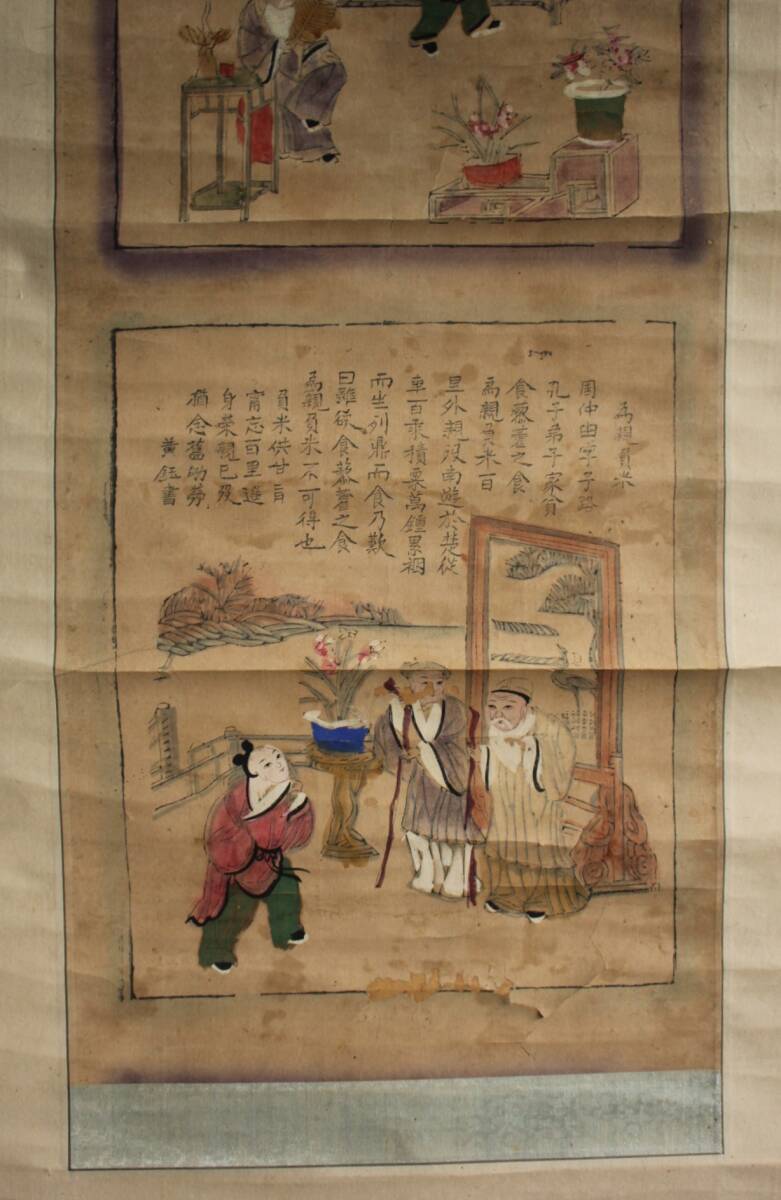 為親負米
周仲由字子路
孔子弟子家貧
食藜藿之食
為親負米百
里外親没南遊於楚從
車百乘積粟萬鍾累裀
而坐列鼎而食乃歎
曰雖欲食藜藿之食
為親負米不可得也
負米供甘旨
甯忘百里遙
身榮親已歿
猶念舊劬勞
黃鈺書